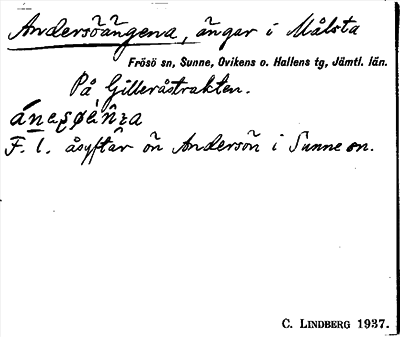 Andersöängena, ängar i Målsta
Frösö sn, Sunne, Ovikens o. Hallens tg, Jämtl. län.
På Gilleråstrakten.
F. l. åsyftar ön Andersön i Sunne sn.
C. LINDBERG 1937.